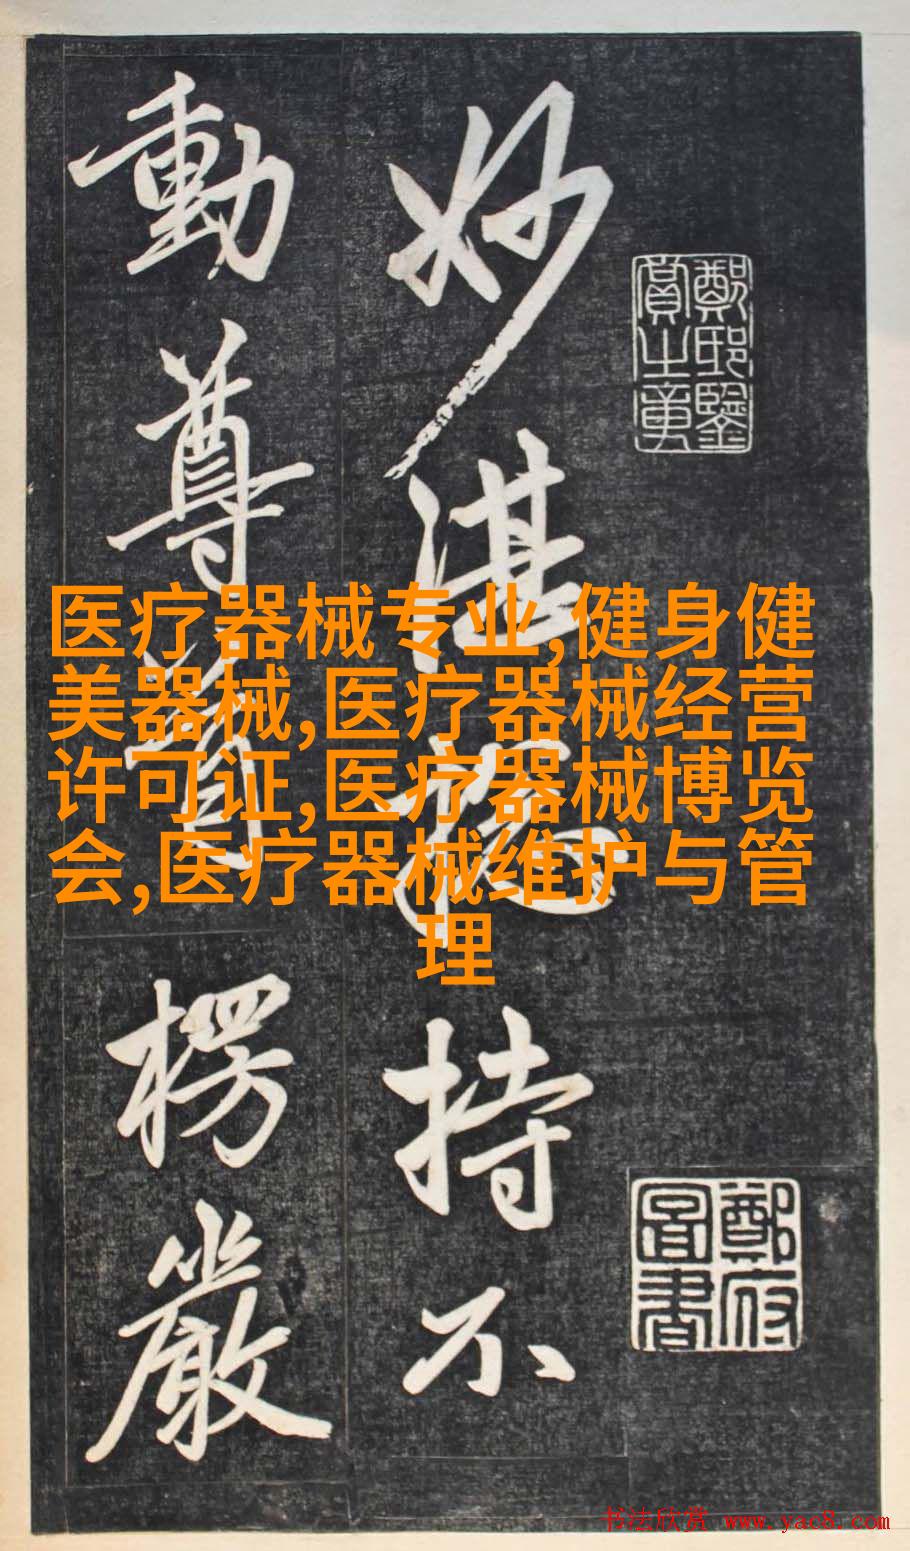 鄭邸鑒
賞之章
鄭府
圖書
妙湛持不
動尊首楞嚴
医疗器械专业,健身健
美器械,医疗器械经营
许可证,医疗器械博览
会,医疗器械维护与管
理
书法欣赏 www.yac8.com